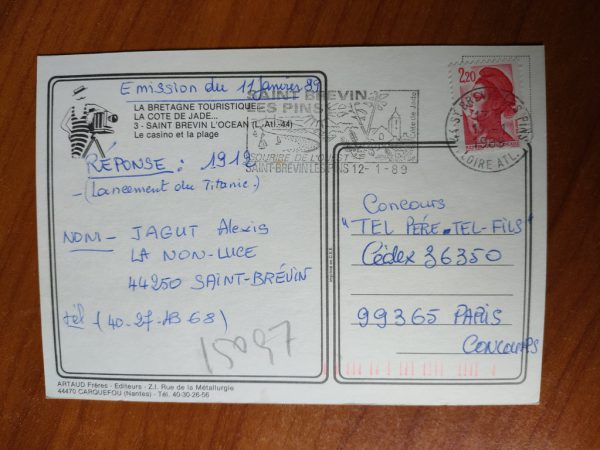 Emission du 11 janvier 89
LA BRETAGNE TOURISTIQUE
LA COTE DE JADE...
3 - SAINT BREVIN L'OCEAN (L.-Atl.-44)
Le casino et la plage
RÉPONSE : 1912
(Lancement du Titanic)
NOM - JAGUT Alexis
LA NON-LUCE
44250 SAINT-BRÉVIN
tél (40-27-13 68)
15097
ARTAUD Frères - Editeurs - Z.I. Rue de la Métallurgie
44470 CARQUEFOU (Nantes) - Tél. 40-30-26-56
SAINT BREVIN
LES PINS
Côte de Jade
SOURIRE DE L'OUEST
SAINT-BREVIN LES PINS 12-1-89
2,20
LOIRE ATL.
Concours
"TEL PÉRE-TEL-FILS"
Cédex 36350
99365 PARIS
CONCOURS